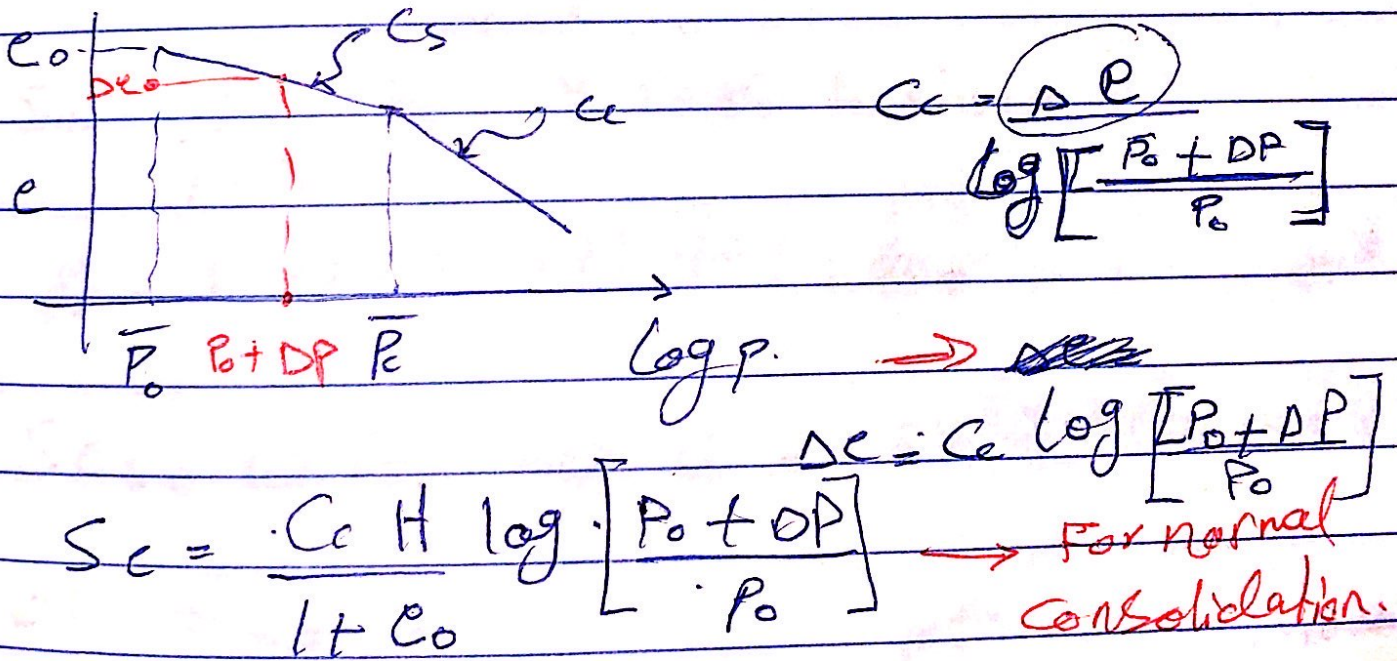 e₀ Cs
Δe₀ Cc
e
P̅₀ P₀ + DP P̅c Log p. →
Cc = Δ e / log [ P₀ + DP / P₀ ]
Δe = Cc log [ P₀ + ΔP / P₀ ]
Sc = Cc H / 1 + e₀ log [ P₀ + DP / P₀ ] → For normal
consolidation.